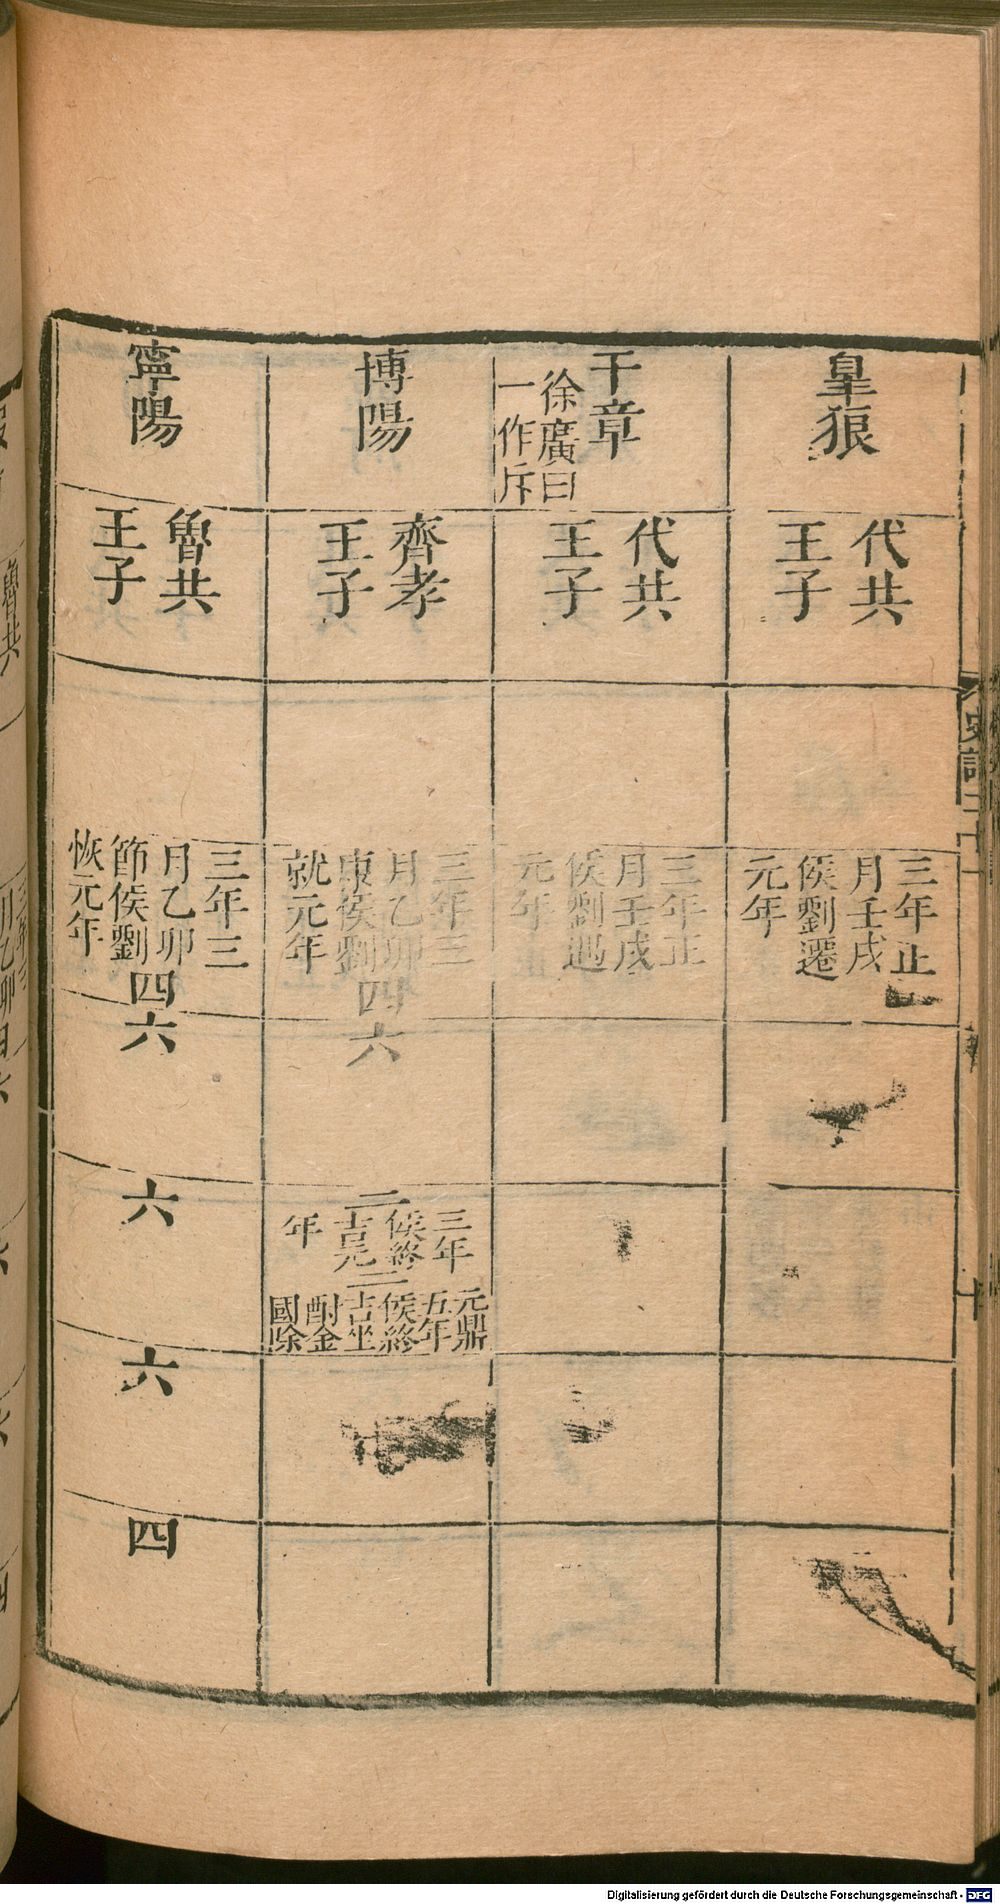 皐狼
代共
王子
三年正
月壬戌
侯劉遷
元年
千章
徐廣曰
一作斥
代共
王子
三年正
月壬戌
侯劉遇
元年
博陽
齊孝
王子
三年三
月乙卯
康侯劉
就元年
四
六
二
三年
侯終
吉元
年
二
元鼎
五年
侯終
吉坐
酎金
國除
寧陽
魯共
王子
三年三
月乙卯
節侯劉
恢元年
四
六
六
六
四
史記二十一
魯共
月乙卯
Digitalisierung gefördert durch die Deutsche Forschungsgemeinschaft - DFG